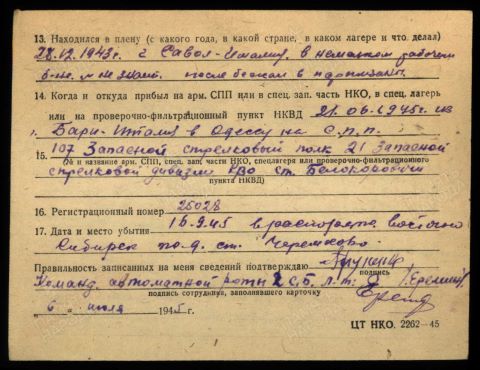 13. Находился в плену (с какого года, в какой стране, в каком лагере и что делал)
28.12.1943г. г. Савол-Италия, в немецком рабочем
б-не, № не знаю. после бежал в партизаны.
14. Когда и откуда прибыл на арм. СПП или в спец. зап. часть НКО, в спец. лагерь
или на проверочно-фильтрационный пункт НКВД 21.06.1945г. из
г. Бари-Италия в Одессу на с.п.п.
15. 107 Запасной стрелковый полк 21 Запасной
(№ и название арм. СПП, спец. зап. части НКО, спецлагеря или проверочно-фильтрационного
стрелковой дивизии ст. Белокоровичи
пункта НКВД)
16. Регистрационный номер 25028
17. Дата и место убытия 16.9.45 в распоряж. восточно
Сибирск по ж.д. ст. Черемхово.
Правильность записанных на меня сведений подтверждаю
подпись
Команд. автоматной роты 2 С.Б. л-т:
подпись сотрудника, заполнявшего карточку
„ 6 „ июля 1945 г.
ЦТ НКО. 2262—45